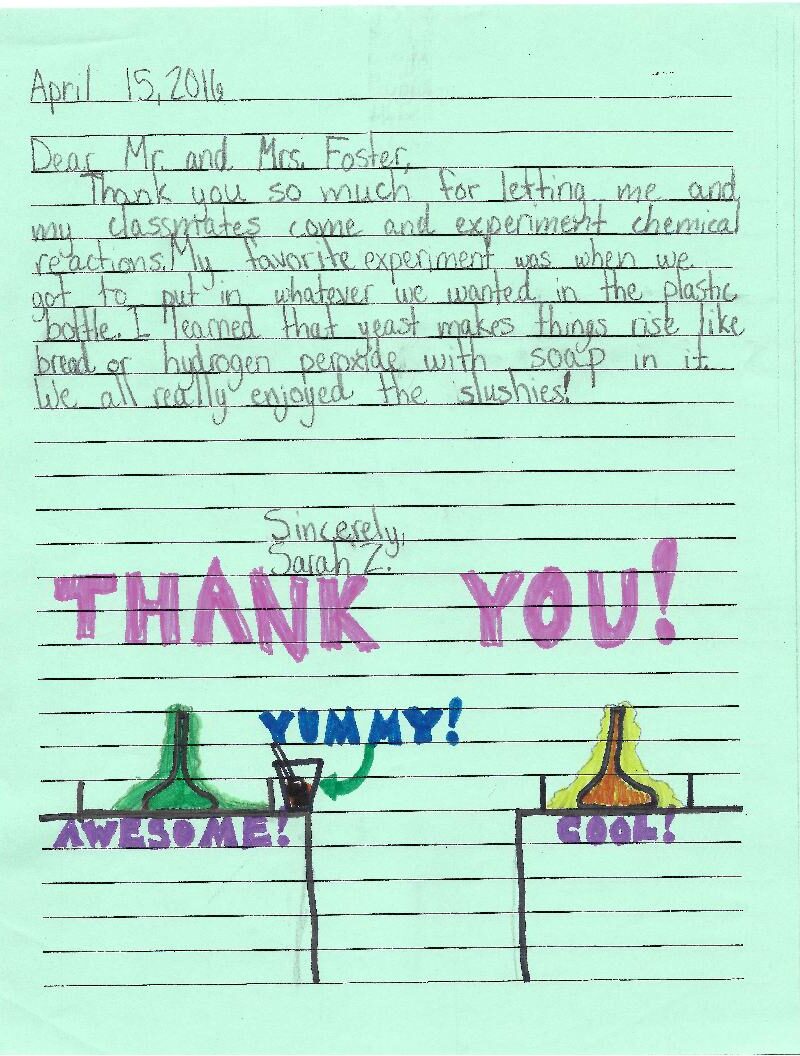 April 15, 2016
Dear Mr. and Mrs. Foster,
Thank you so much for letting me and
my classmates come and experiment chemical
reactions. My favorite experiment was when we
got to put in whatever we wanted in the plastic
bottle. I learned that yeast makes things rise like
bread or hydrogen peroxide with soap in it.
We all really enjoyed the slushies!
Sincerely,
Sarah Z.
THANK YOU!
YUMMY!
AWESOME! COOL!